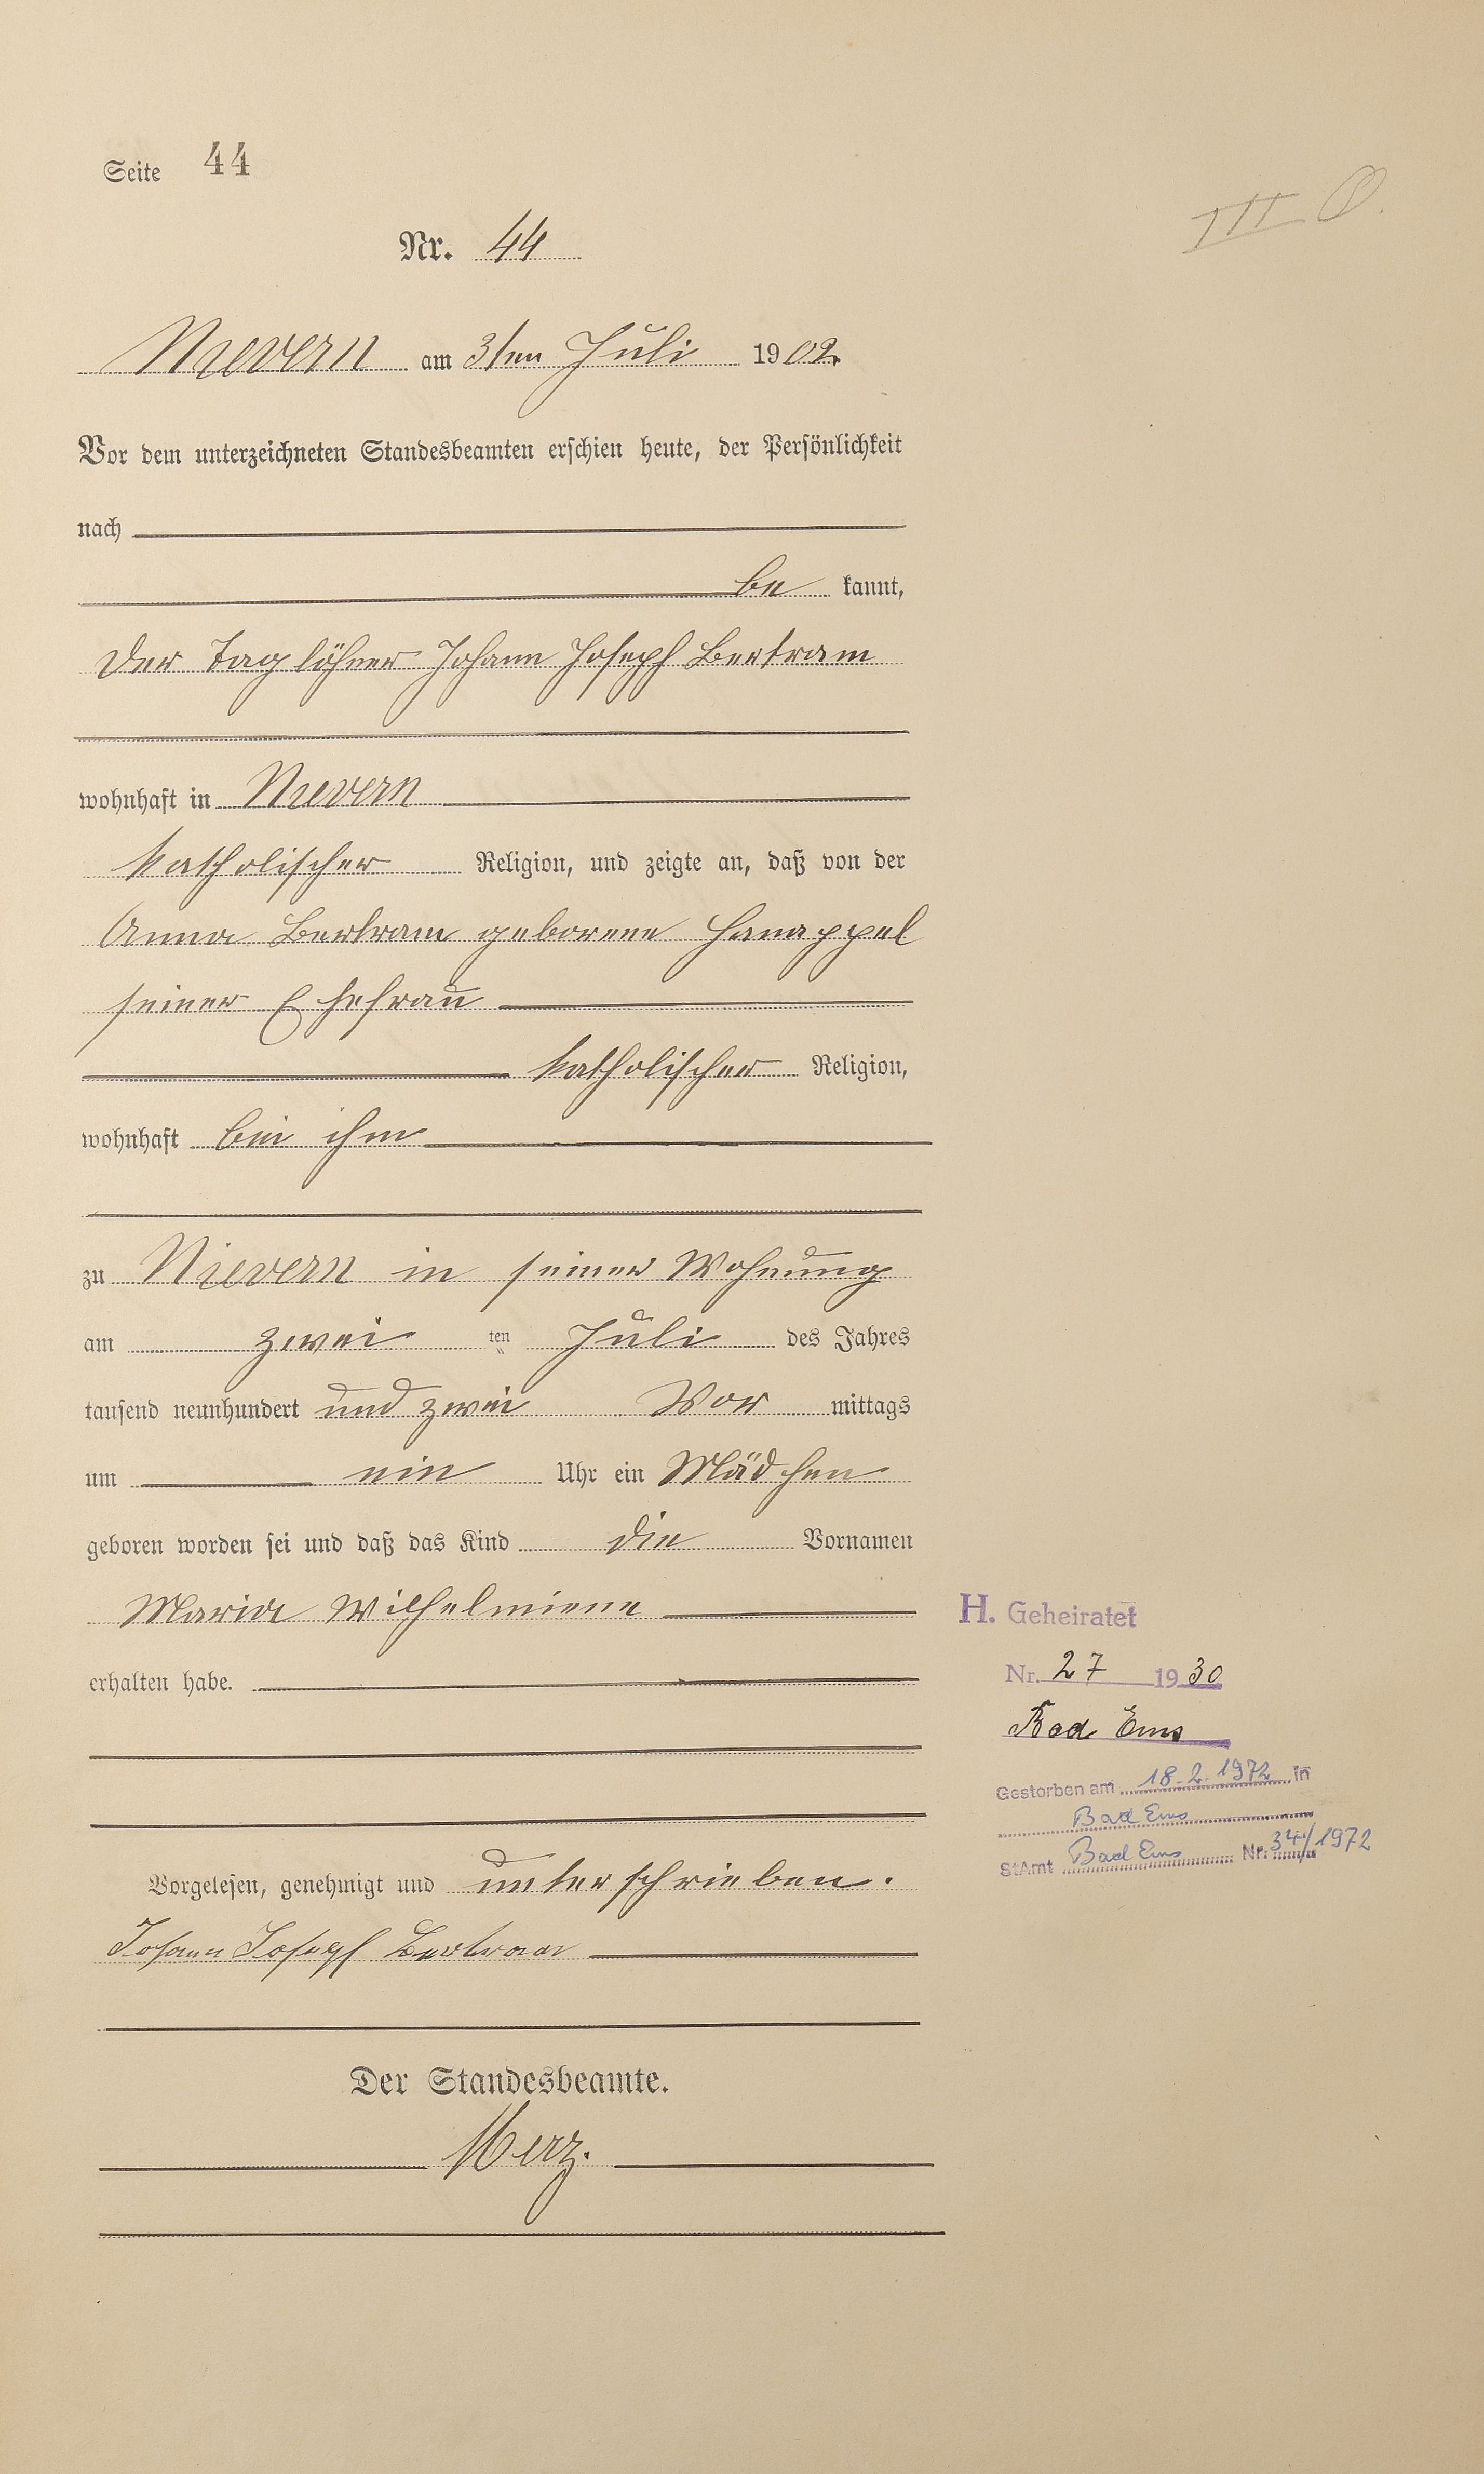 Seite 44
III
Nr. 44
Nievern am 3ten Juli 1902.
Vor dem unterzeichneten Standesbeamten erschien heute, der Persönlichkeit
nach
be kannt,
der Taglöhner Johann Joseph Bertram
wohnhaft in Nievern
katholischer Religion, und zeigte an, daß von der
Anna Bertram geborene Hanappel
seiner Ehefrau
katholischer Religion,
wohnhaft bei ihm
zu Nievern in seiner Wohnung
am zwei ten Juli des Jahres
tausend neunhundert und zwei Vor mittags
um ein Uhr ein Mädchen
geboren worden sei und daß das Kind die Vornamen
Maria Wilhelmiene
erhalten habe.
H. Geheiratet
Nr. 27 1930
Bad Ems
Gestorben am 18.2.1972 in
Bad Ems
StAmt Bad Ems Nr. 34/1972
Vorgelesen, genehmigt und unterschrieben.
Johann Joseph Bertram
Der Standesbeamte.
Merz.